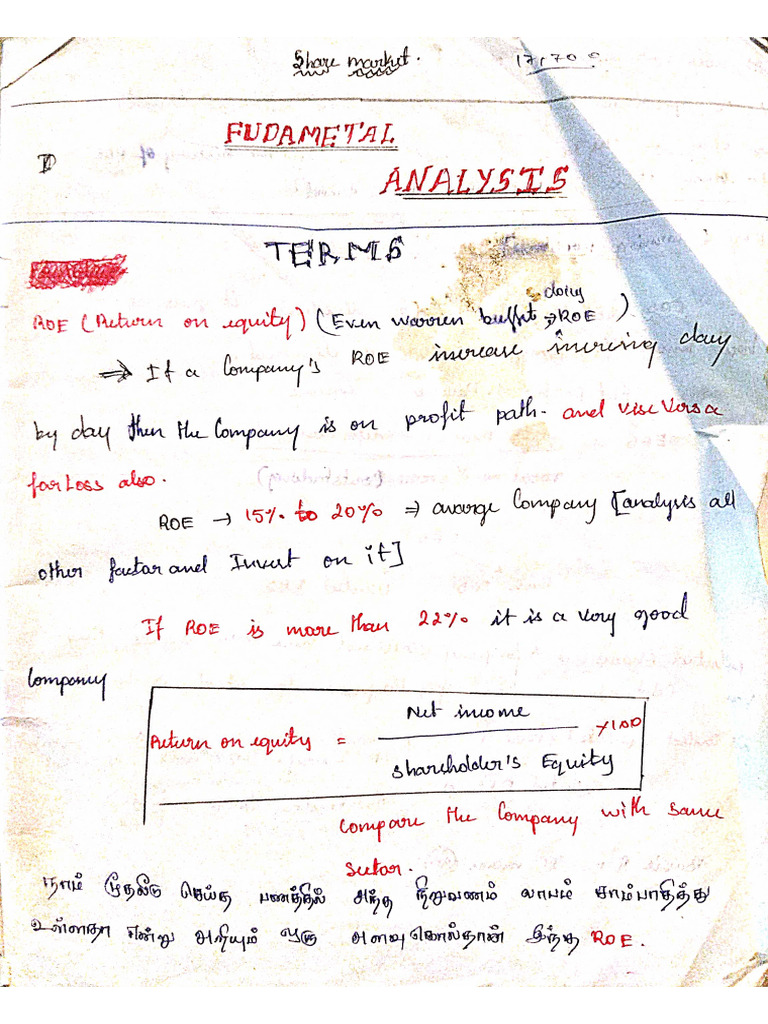 Share market.
FUDAMETAL
ANALYSIS
TERMS
ROE (Return on equity) (Even warren buffet doing ROE)
⇒ If a Company's ROE increase incresing day
by day then the Company is on profit path. and vise versa
for Loss also.
ROE → 15% to 20% ⇒ avarge Company [analysis all
other factor and Invest on it]
If ROE is more than 22% it is a very good
Company
Return on equity = Net income / Shareholder's Equity ×100
Compare the Company with same
sector.
நாம் முதலீடு செய்த பணத்தில் அந்த நிறுவணம் லாபம் சாம்பாதித்து
உள்ளதா என்று அறியும் ஒரு அளவுகோல்தான் இந்த ROE.